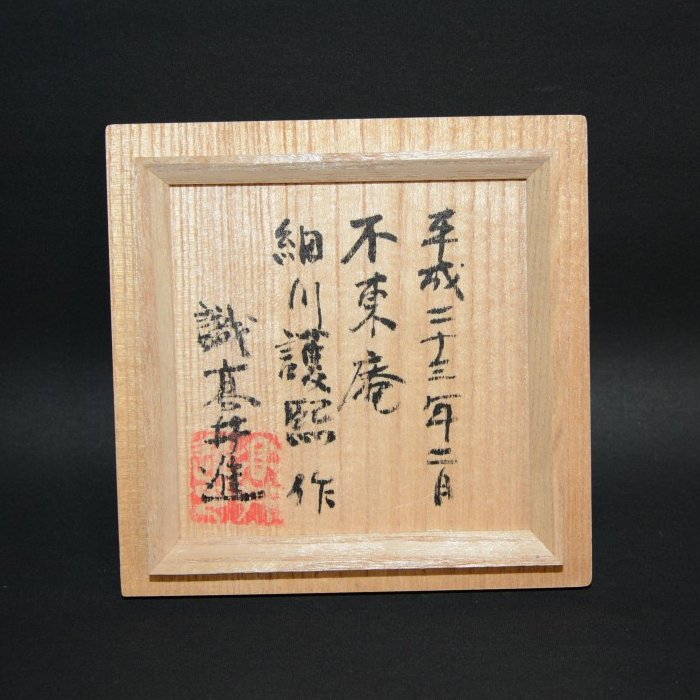 平成二十三年二月
不東庵
細川護熙 作
識 髙井進